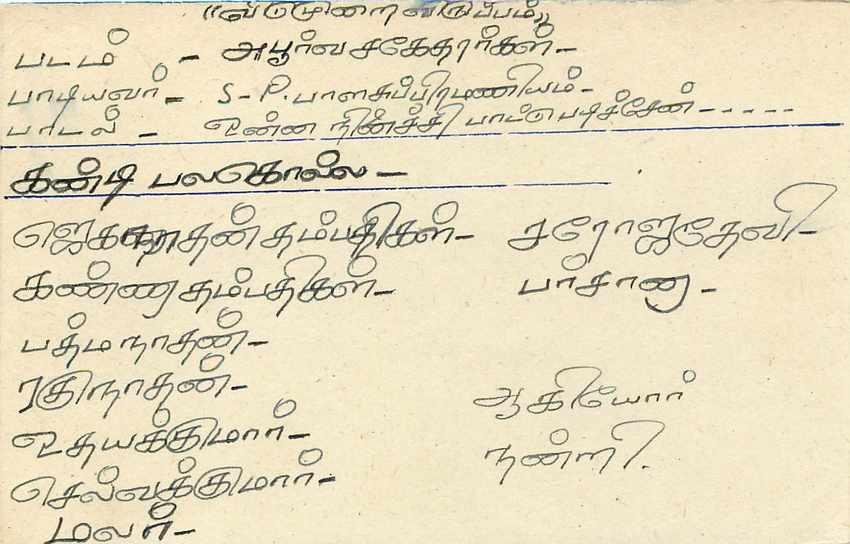 "விடுமுறை விருப்பம்"
படம் - அபூர்வ சகோதரர்கள் -
பாடியவர் - S-P. பாலசுப்பிரமணியம் -
பாடல் - ஒன்ன நினச்சி பாட்டுபடிச்சேன் - - - - -
கண்டி பலகொல்ல -
ஜெகநாதன் தம்பதிகள் - சரோஜதேவி -
கண்ண தம்பதிகள் - பர்சானா -
பத்மநாதன் -
ரகுநாதன் -
உதயக்குமார் - ஆகியோர்
செல்வக்குமார் - நன்றி.
மலர் -